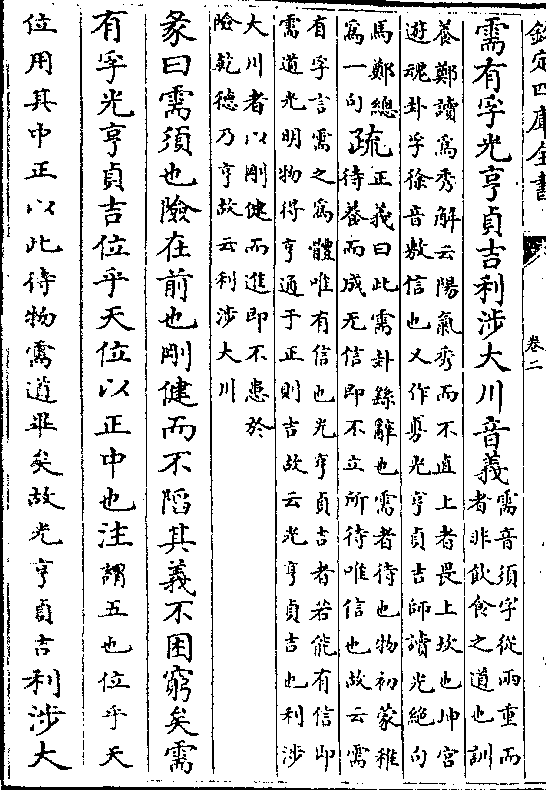 欽定四庫全書 卷二
需有孚光亨貞吉利涉大川音義
需音須字從雨重而
者非飲食之道也訓
養鄭讀為秀解云陽氣秀而不直上者畏上坎也坤宮
遊魂卦孚徐音敷信也又作旉光亨貞吉師讀光絶句
馬鄭總
為一句
疏
正義曰此需卦繇辭也需者待也物初蒙稚
待養而成无信即不立所待唯信也故云需
有孚言需之為體唯有信也光亨貞吉者若能有信即
需道光明物得亨通于正則吉故云光亨貞吉也利涉
大川者以剛健而進即不患於
險乾德乃亨故云利涉大川
彖曰需須也險在前也剛健而不陷其義不困窮矣需
有孚光亨貞吉位乎天位以正中也注謂五也位乎天
位用其中正以此待物需道畢矣故光亨貞吉利涉大